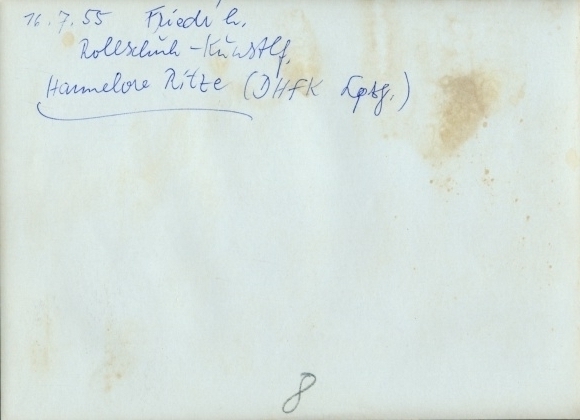 16.7.55 Friedr'h.
Rollschuh-Kunstlf.
Hannelore Ritze (DHfK Lpzg.)
8